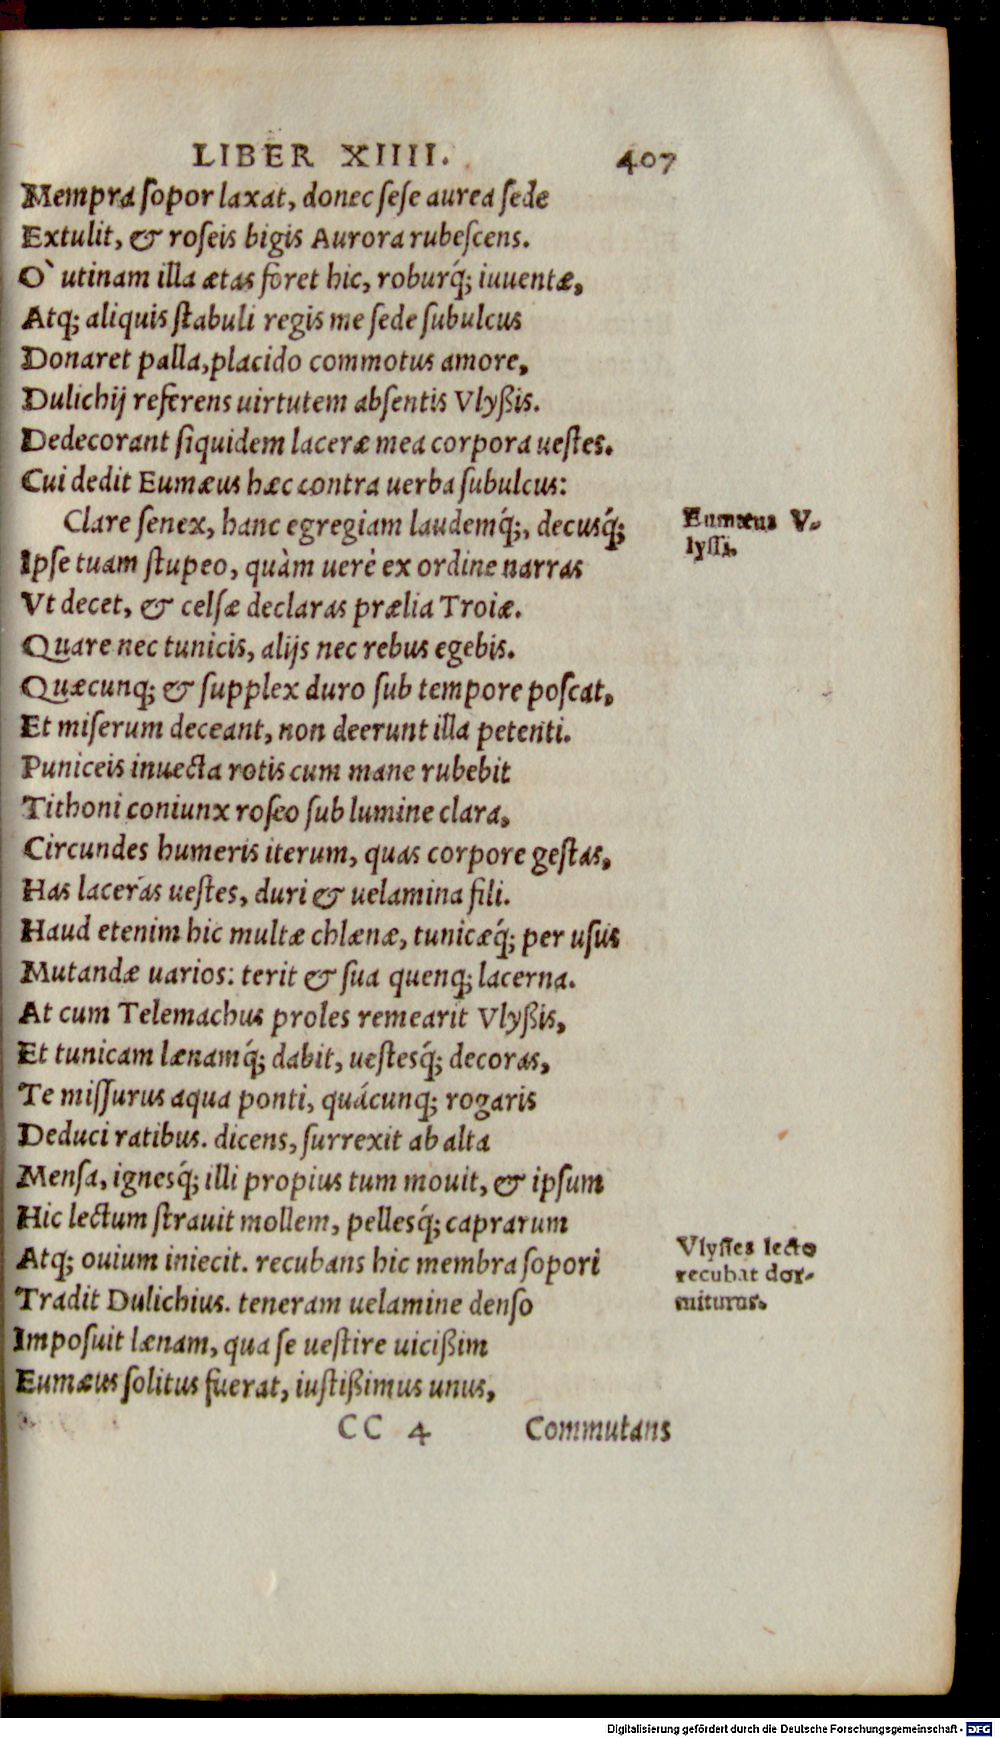 LIBER XIIII. 407
Mempra sopor laxat, donec sese aurea sede
Extulit, & roseis bigis Aurora rubescens.
O` utinam illa ætas foret hic, roburq́; iuuentæ,
Atq; aliquis stabuli regis me sede subulcus
Donaret palla, placido commotus amore,
Dulichij referens uirtutem absentis Vlyßis.
Dedecorant siquidem laceræ mea corpora uestes.
Cui dedit Eumæus hæc contra uerba subulcus:
Clare senex, hanc egregiam laudemq́;, decusq́;
Eumæus V-
lyssi.
Ipse tuam stupeo, quàm uerè ex ordine narras
Vt decet, & celsæ declaras prælia Troiæ.
Quare nec tunicis, alijs nec rebus egebis.
Quæcunq; & supplex duro sub tempore poscat,
Et miserum deceant, non deerunt illa petenti.
Puniceis inuecta rotis cum mane rubebit
Tithoni coniunx roseo sub lumine clara,
Circundes humeris iterum, quas corpore gestas,
Has laceras uestes, duri & uelamina fili.
Haud etenim hic multæ chlænæ, tunicæq́; per usus
Mutandæ uarios: terit & sua quenq; lacerna.
At cum Telemachus proles remearit Vlyßis,
Et tunicam lænamq́; dabit, uestesq́; decoras,
Te missurus aqua ponti, quácunq; rogaris
Deduci ratibus. dicens, surrexit ab alta
Mensa, ignesq́; illi propius tum mouit, & ipsum
Hic lectum strauit mollem, pellesq́; caprarum
Atq; ouium iniecit. recubans hic membra sopori
Vlysses lecto
recubat dor-
miturus.
Tradit Dulichius. teneram uelamine denso
Imposuit lænam, qua se uestire uicißim
Eumæus solitus fuerat, iustißimus unus,
CC 4 Commutans
Digitalisierung gefördert durch die Deutsche Forschungsgemeinschaft - DFG